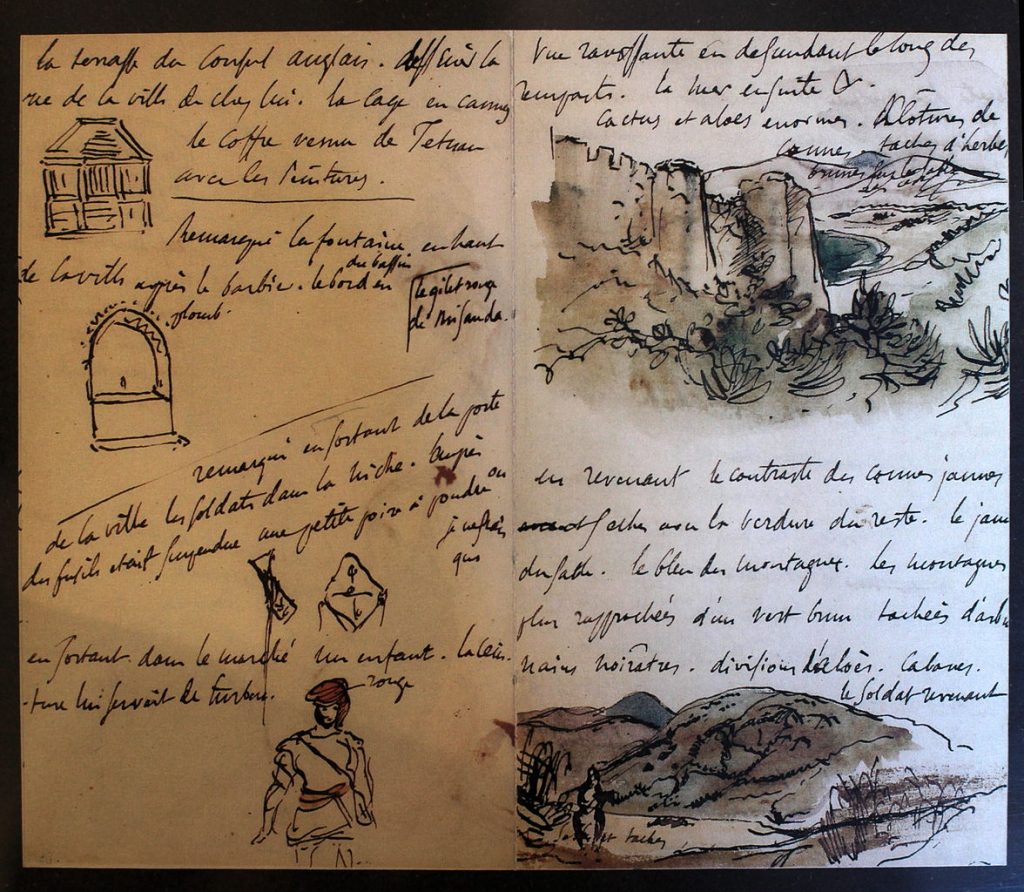 la terrasse du consul anglais. dessiné la
vue de la ville de chez lui. la cage en cannes
le coffre venu de Tetuan
avec les peintures.
Remarqué la fontaine en haut
de la ville après le barbier. le bord du bassin en
plomb.
le gilet rouge
de
remarqué en sortant de la porte
de la ville les soldats dans la niche. Auprès
des fusils etait suspendue une petite poire à poudre ou
je ne sais
quoi
en sortant dans le marché un enfant. la cein-
-ture lui servait de turban.
rouge
Vue ravissante en descendant le long des
remparts. la mer ensuite &.
cactus et aloès enormes. Clôtures de
cannes. taches d'herbes
brunes sur le sable
en revenant le contraste des cannes jaunes
et seches avec la verdure du reste. le jaune
du sable. le bleu des montagnes. les montagnes
plus rapprochées d'un vert brun tachées d'arbres
nains noirâtres. divisions d'aloès. Cabanes.
le soldat revenant
et taches